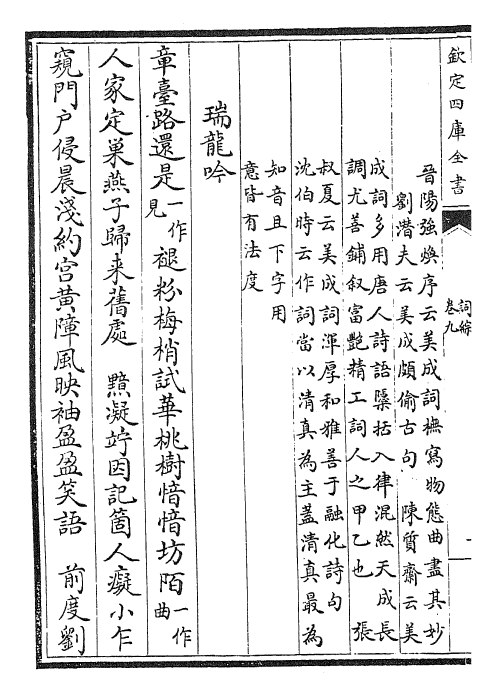 欽定四庫全書
詞綜
卷九
一
晉陽強煥序云美成詞撫寫物態曲盡其妙
劉潛夫云美成頗偷古句 陳質齋云美
成詞多用唐人詩語櫽括入律混然天成長
調尤善鋪叙富艷精工詞人之甲乙也 張
叔夏云美成詞渾厚和雅善于融化詩句
沈伯時云作詞當以清真為主蓋清真最為
知音且下字用
意皆有法度
瑞龍吟
章臺路還是一作見褪粉梅梢試華桃樹愔愔坊陌一作曲
人家定巢燕子歸来舊處 黯凝竚因記箇人癡小乍
窺門户侵晨淺約宫黄障風映袖盈盈笑語 前度劉